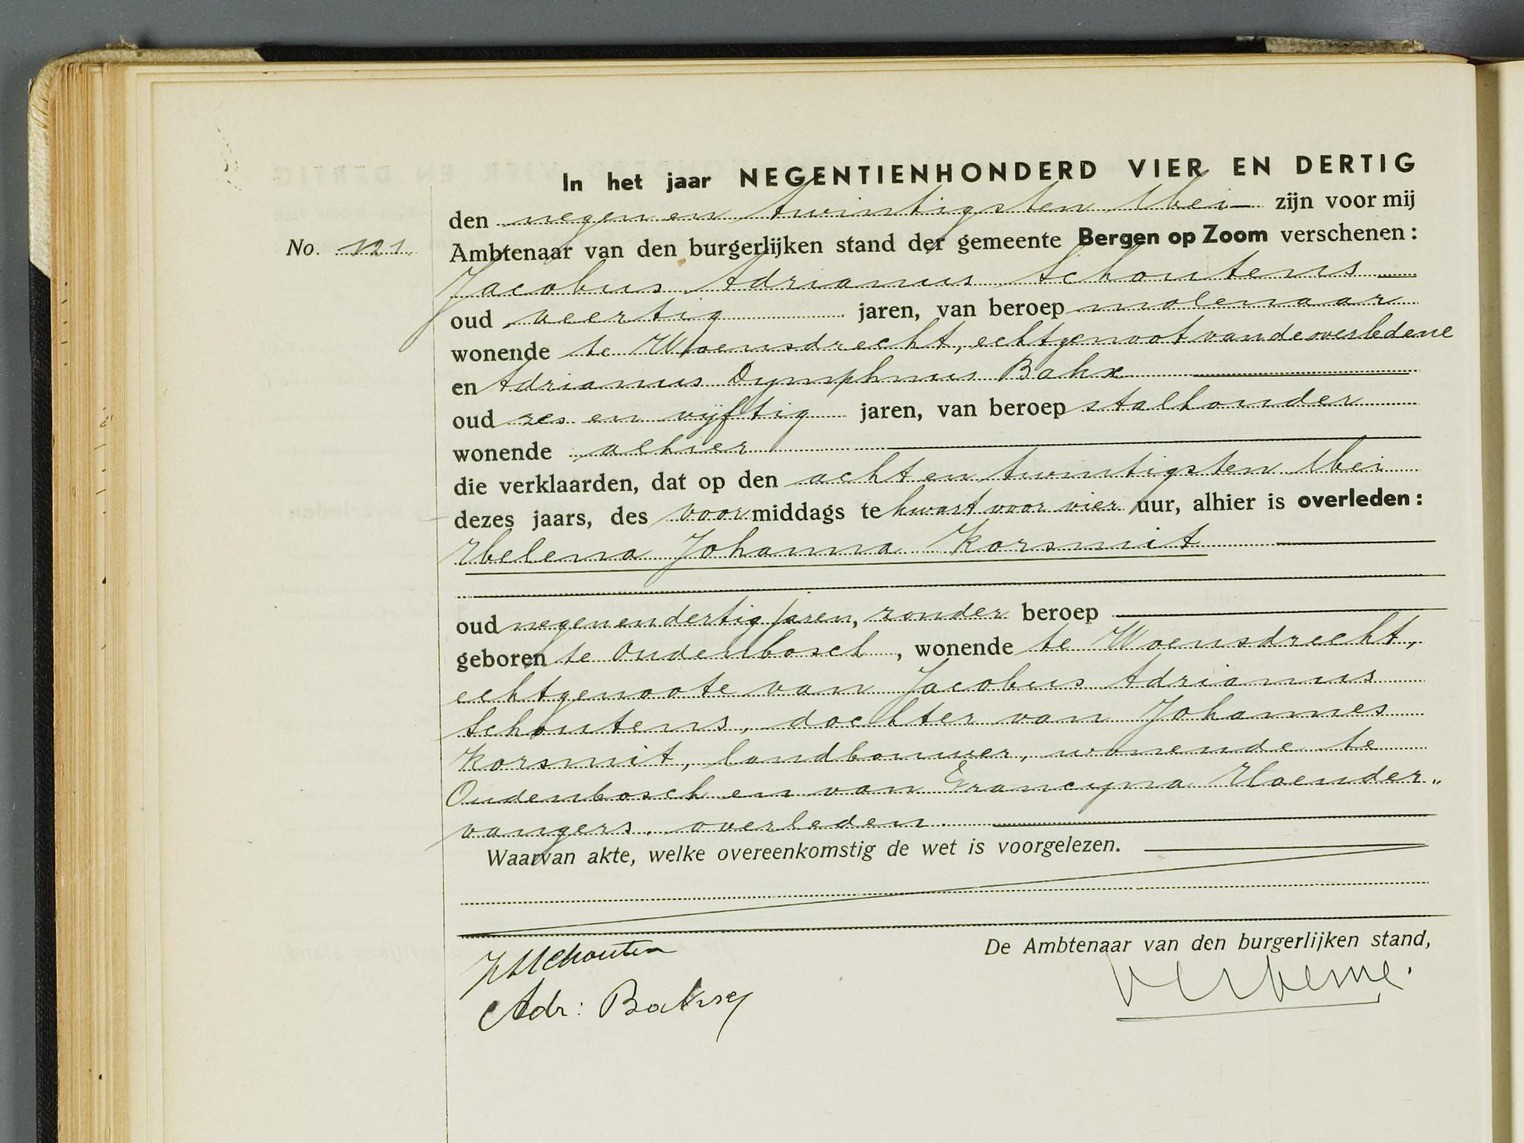 In het jaar NEGENTIENHONDERD VIER EN DERTIG
den negen en twintigsten Mei zijn voor mij
No. 121. Ambtenaar van den burgerlijken stand der gemeente Bergen op Zoom verschenen:
Jacobus Adrianus Schoutens
oud veertig jaren, van beroep molenaar
wonende te Woensdrecht, echtgenoot van de overledene
en Adrianus Dymphnus Bakx
oud zes en vijftig jaren, van beroep stalhouder
wonende alhier
die verklaarden, dat op den acht en twintigsten Mei
dezes jaars, des voormiddags te kwart voor vier uur, alhier is overleden:
Helena Johanna Korsmit
oud negenendertig jaren, zonder beroep
geboren te Oudenbosch, wonende te Woensdrecht,
echtgenoote van Jacobus Adrianus
Schoutens, dochter van Johannes
Korsmit, landbouwer, wonende te
Oudenbosch en van Francyna Hoender-
vangers, overleden.
Waarvan akte, welke overeenkomstig de wet is voorgelezen.
De Ambtenaar van den burgerlijken stand,
Adr: Bakx